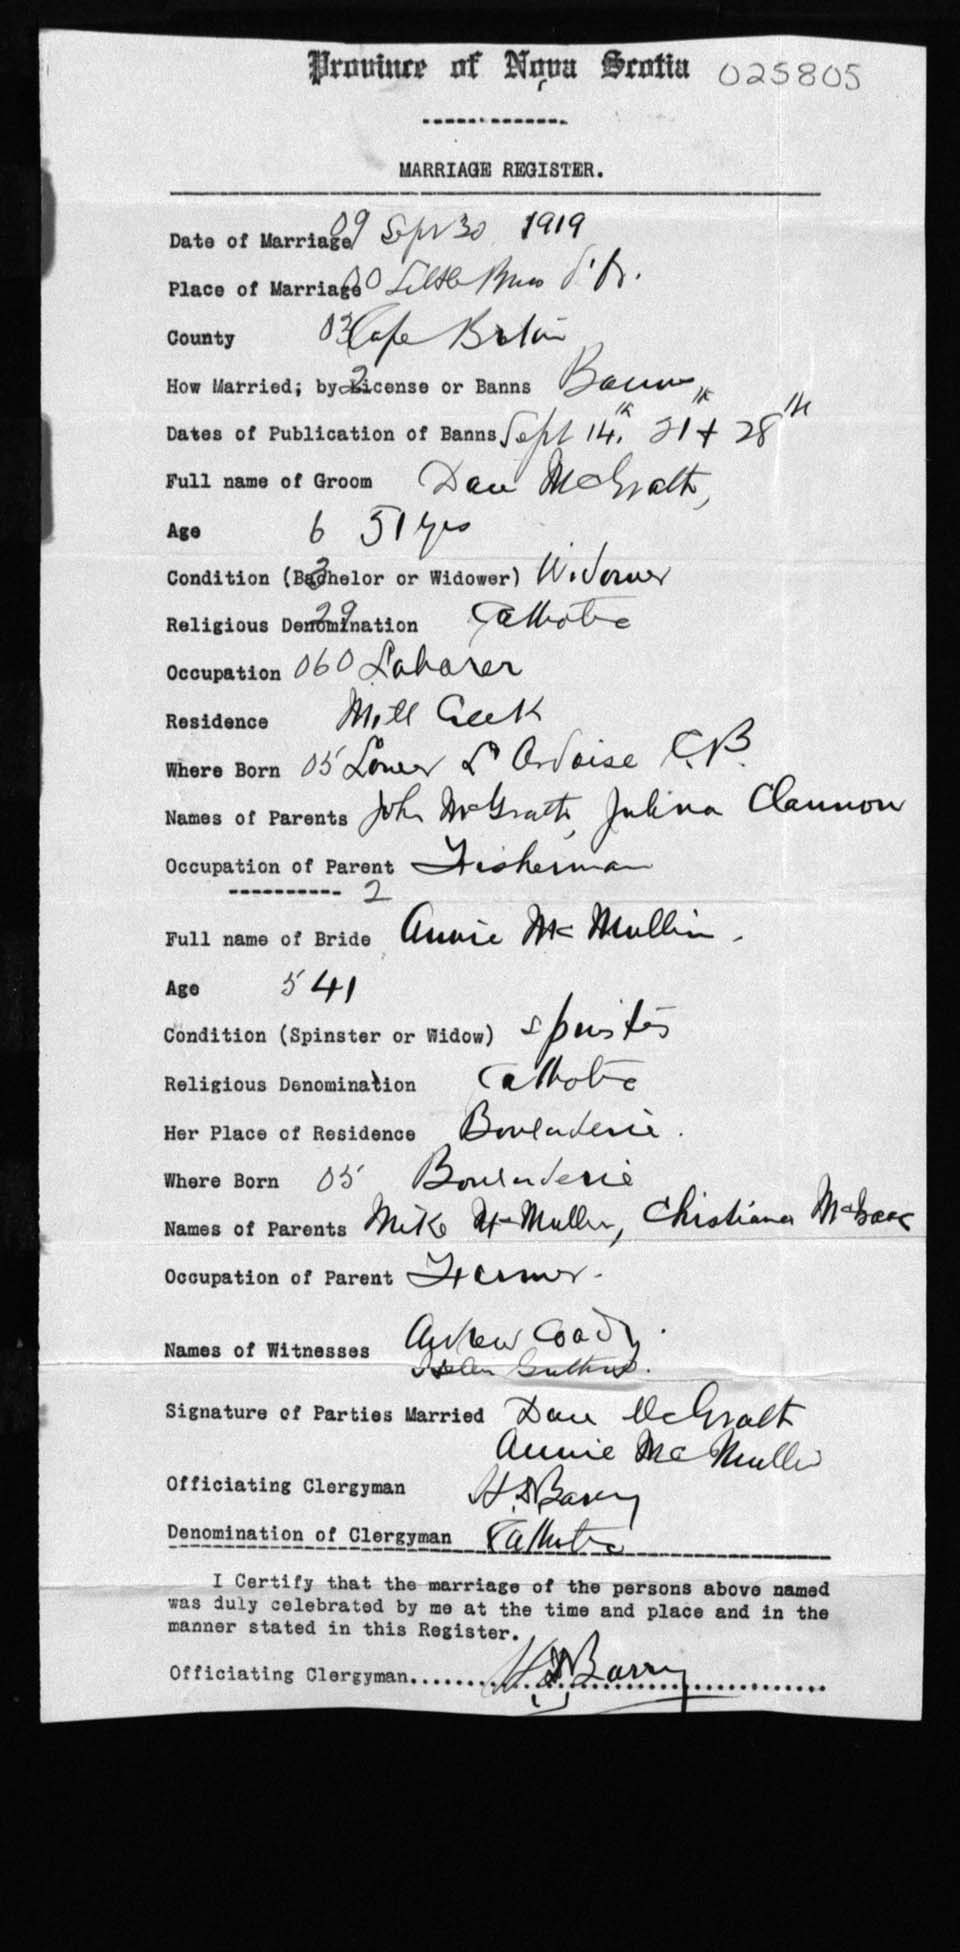 Province of Nova Scotia 025805
MARRIAGE REGISTER.
Date of Marriage 09 Sept 30 1919
Place of Marriage 00 Little Bras d'Or.
County 03 Cape Breton
How Married; by License or Banns 2 Banns
Dates of Publication of Banns Sept 14th, 21th + 28th
Full name of Groom Dan McGrath,
Age 6 51 yrs
Condition (Bachelor or Widower) 3 Widower
Religious Denomination 29 Catholic
Occupation 060 Laborer
Residence Mill Creek
Where Born 05 Lower L'Ardoise C.B.
Names of Parents John McGrath, Julina Clannon
Occupation of Parent Fisherman
2
Full name of Bride Annie McMullin.
Age 5 41
Condition (Spinster or Widow) Spinster
Religious Denomination Catholic
Her Place of Residence Boularderie.
Where Born 05 Boularderie
Names of Parents Mike McMullin, Christiana McIsaac
Occupation of Parent Farmer.
Names of Witnesses Andrew Coady.
Helen
Signature of Parties Married Dan McGrath
Annie McMullin
Officiating Clergyman H.D. Barry
Denomination of Clergyman Catholic
I Certify that the marriage of the persons above named
was duly celebrated by me at the time and place and in the
manner stated in this Register.
Officiating Clergyman H.D. Barry